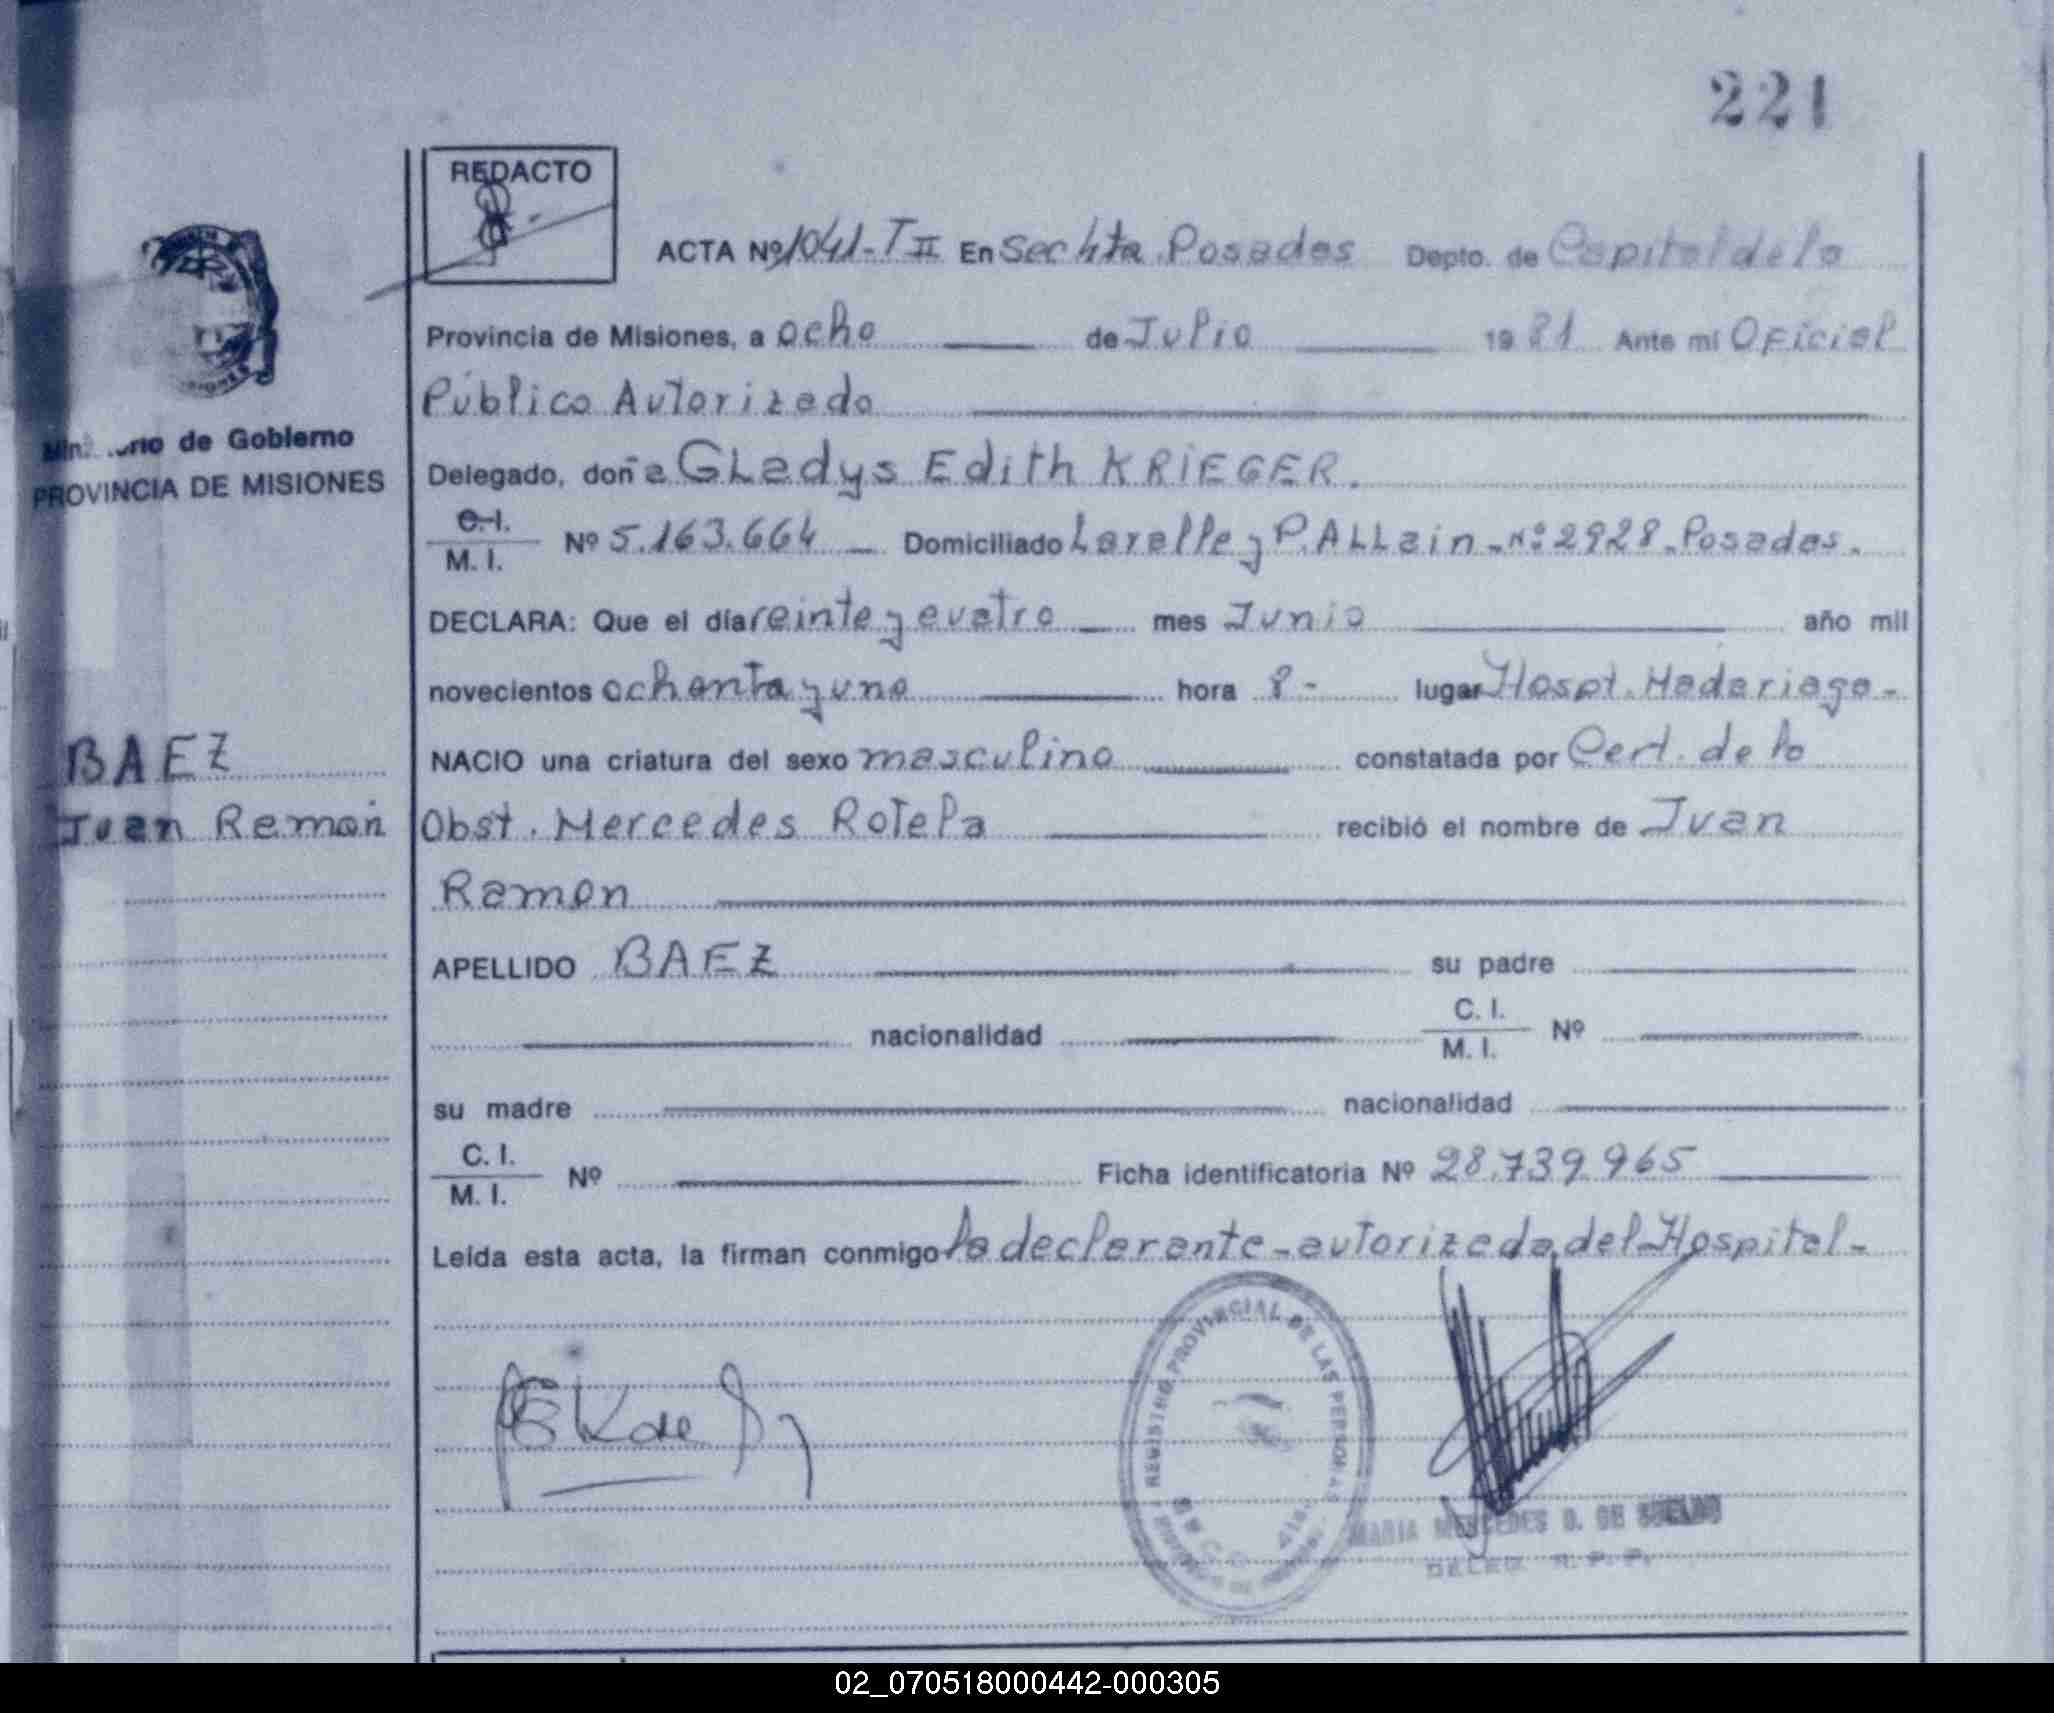 221
REDACTO
ACTA Nº 1041-T II En Sec 4ta Posadas Depto. de Capital de la
Provincia de Misiones, a ocho de Julio 1981 Ante mí Oficial
Público Autorizado
Ministerio de Gobierno
PROVINCIA DE MISIONES
Delegado, doña GLadys Edith KRIEGER.
C.I.
M. I. Nº 5.163.664 Domiciliado Lavalle y P. ALLain - Nº 2928 - Posadas.
DECLARA: Que el día veinte y cuatro mes Junio año mil
novecientos ochenta y uno hora 8 - lugar Hospt. Madariaga -
BAEZ
NACIO una criatura del sexo masculino constatada por Cert. de la
Juan Ramón
Obst. Mercedes Rotela recibió el nombre de Juan
Ramon
APELLIDO BAEZ su padre
nacionalidad C. I.
M. I. Nº
su madre nacionalidad
C. I.
M. I. Nº Ficha identificatoria Nº 28.739.965
Leída esta acta, la firman conmigo la declarante - autorizada del Hospital -
REGISTRO PROVINCIAL DE LAS PERSONAS
MARIA MERCEDES D. DE
DELEG. R. P. P.
02_070518000442-000305